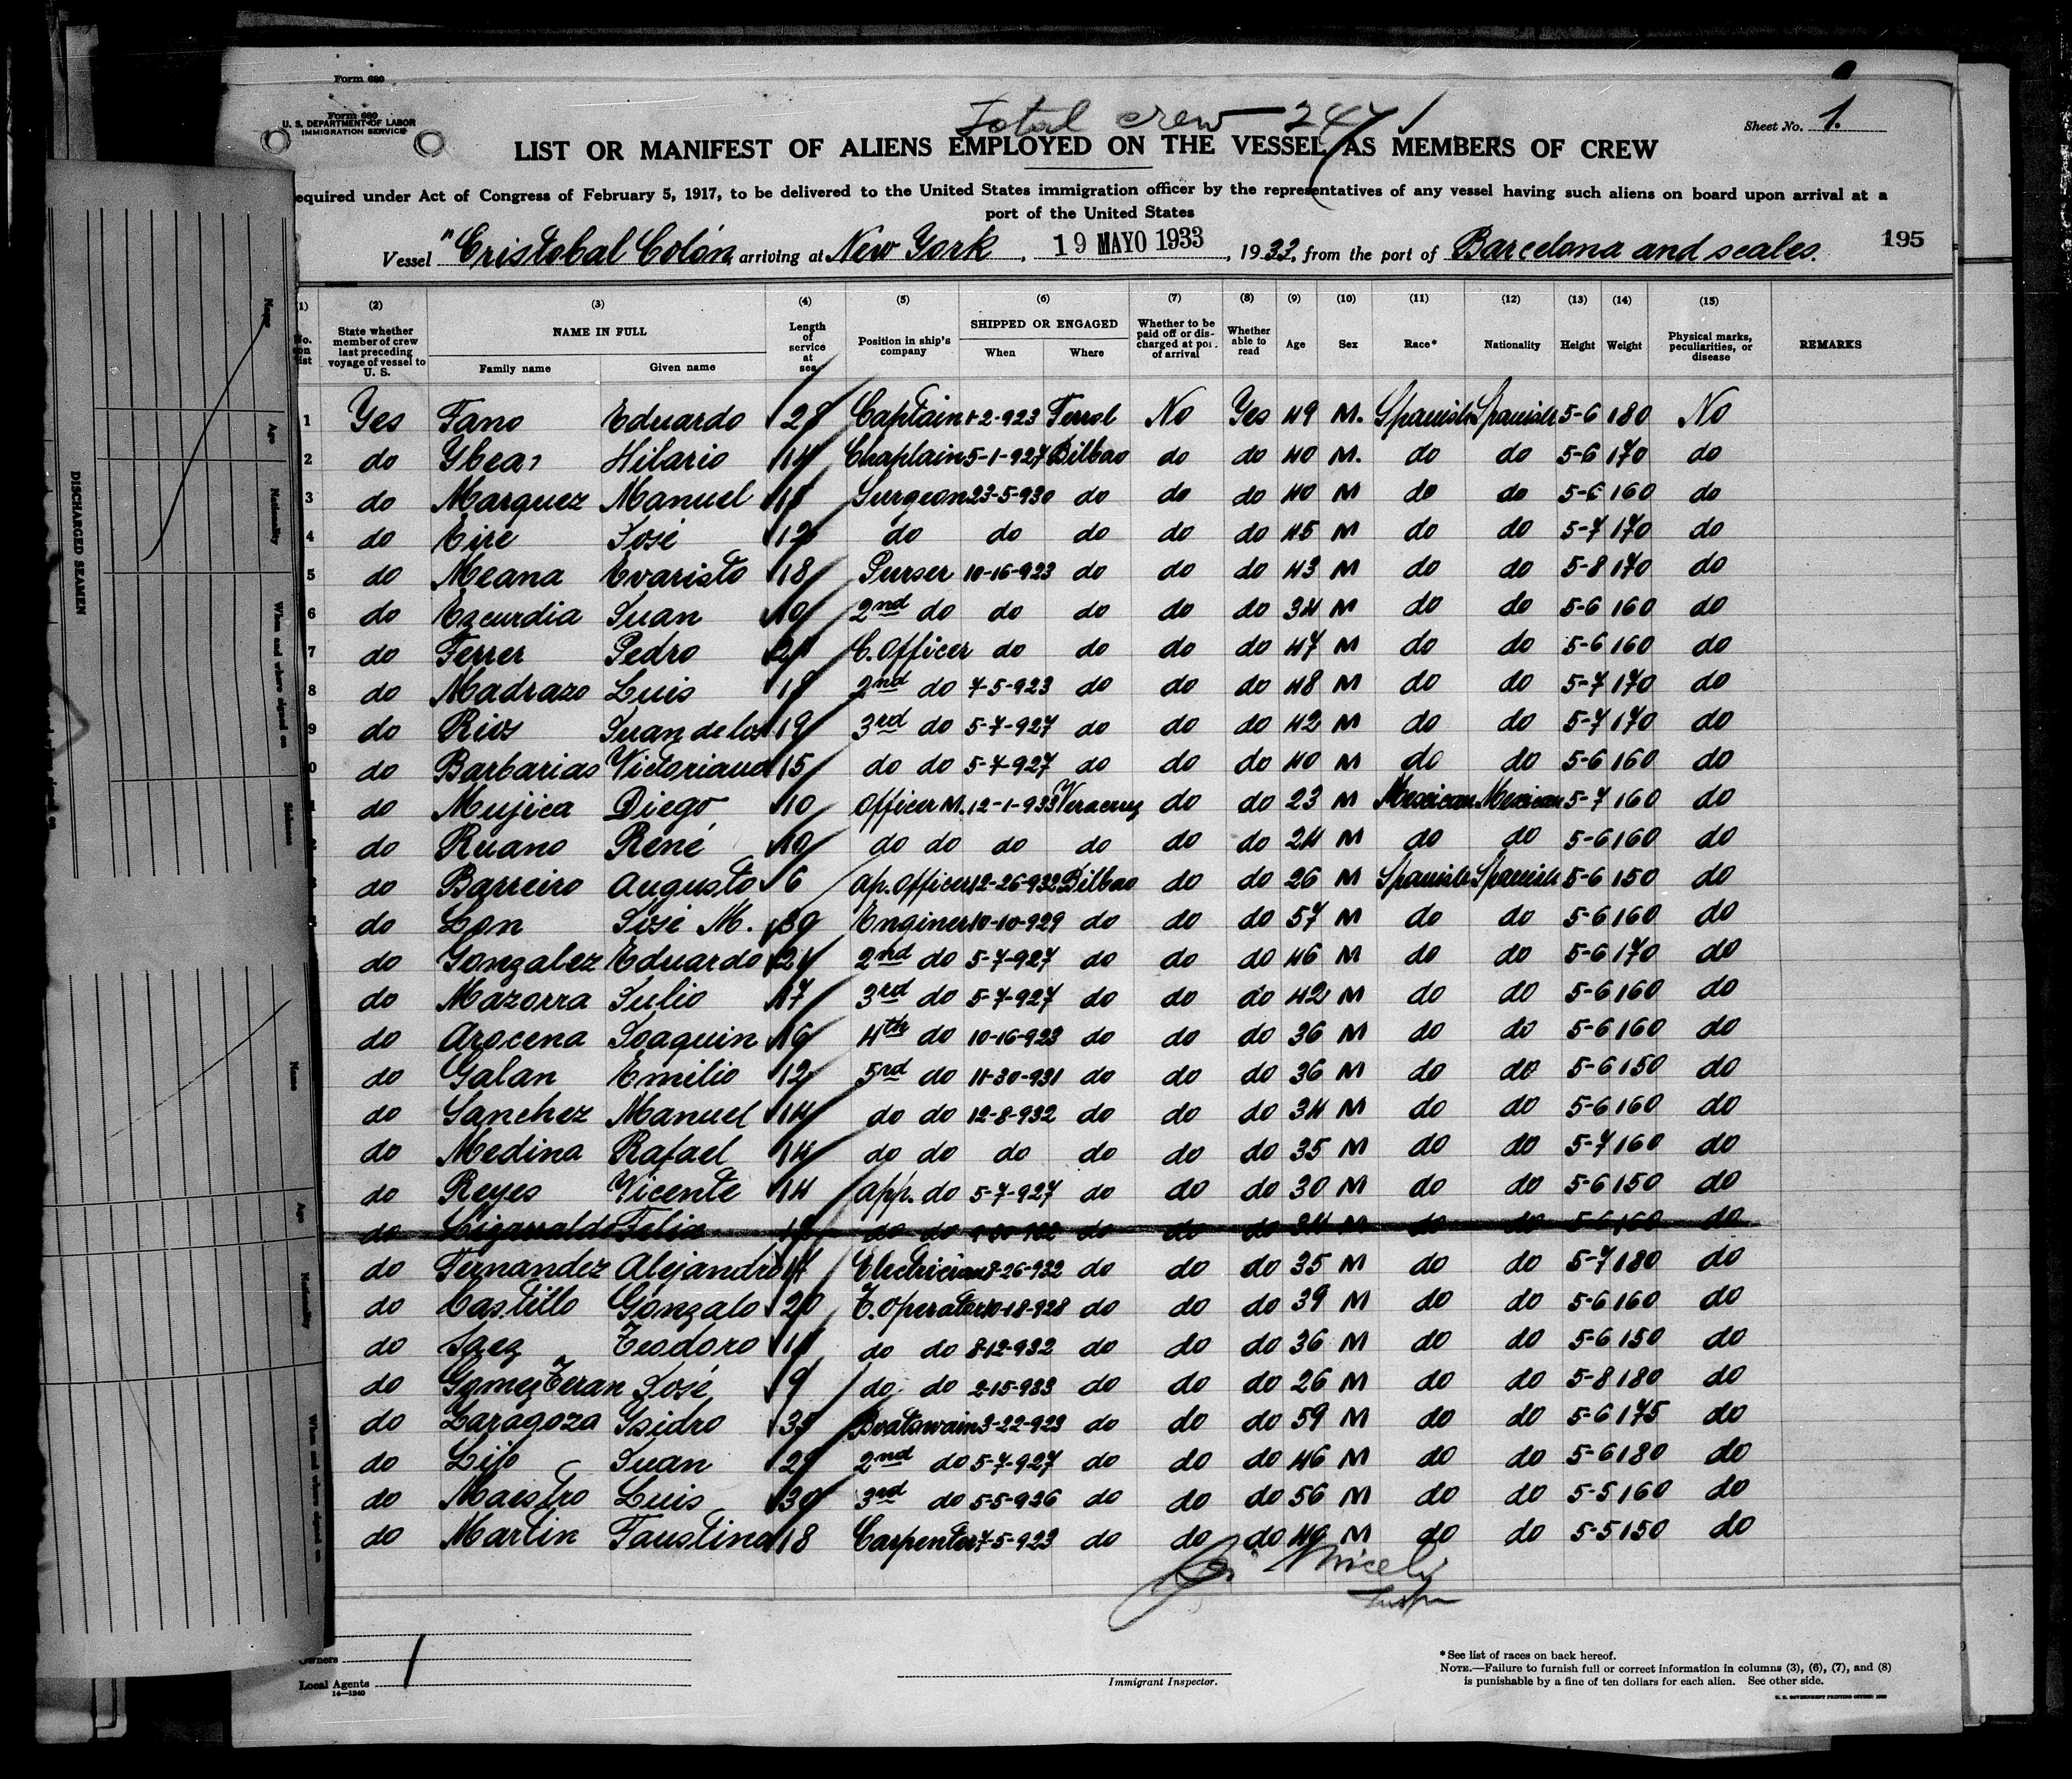 Form 680
Form 680
U. S. DEPARTMENT OF LABOR
IMMIGRATION SERVICE
Total crew 247
Sheet No. 1.
LIST OR MANIFEST OF ALIENS EMPLOYED ON THE VESSEL AS MEMBERS OF CREW
equired under Act of Congress of February 5, 1917, to be delivered to the United States immigration officer by the representatives of any vessel having such aliens on board upon arrival at a
port of the United States
Vessel "Cristobal Colón, arriving at New York, 19 MAYO 1933, 1933, from the port of Barcelona and scales. 195
(1) (2) (3) (4) (5) (6) (7) (8) (9) (10) (11) (12) (13) (14) (15)
No. on list State whether member of crew last preceding voyage of vessel to U. S. NAME IN FULL Family name Given name Length of service at sea Position in ship's company SHIPPED OR ENGAGED When Where Whether to be paid off or discharged at port of arrival Whether able to read Age Sex Race* Nationality Height Weight Physical marks, peculiarities, or disease REMARKS
1 Yes Fano Eduardo 28 Captain 1-2-923 Ferrol No Yes 49 M. Spanish Spanish 5-6 180 No
2 do Hilario 14 Chaplain 5-1-927 Bilbao do do 40 M. do do 5-6 170 do
3 do Marquez Manuel Surgeon 23-5-930 do do do 40 M do do 5-6 160 do
4 do Eire José 12 do do do do do 45 M do do 5-7 170 do
5 do Meana Evaristo 18 Purser 10-16-923 do do do 43 M do do 5-8 170 do
6 do Ezcurdia Juan 10 2nd do do do do do 34 M do do 5-6 160 do
7 do Ferrer Pedro C. Officer do do do do 47 M do do 5-6 160 do
8 do Madrazo Luis 18 2nd do 7-5-923 do do do 48 M do do 5-7 170 do
9 do Rios Juan de los 19 3rd do 5-7-927 do do do 42 M do do 5-7 170 do
0 do Barbarias Victoriano 15 do do 5-7-927 do do do 40 M do do 5-6 160 do
do Mujica Diego 10 Officer M. 12-1-933 Veracruz do do 23 M Mexican Mexican 5-7 160 do
do Ruano René 10 do do do do do do 24 M do do 5-6 160 do
do Barreiro Augusto 6 Ap. Officer 12-26-932 Bilbao do do 26 M Spanish Spanish 5-6 150 do
do Lon José M. 39 Enginer 10-10-929 do do do 57 M do do 5-6 160 do
do Gonzalez Eduardo 21 2nd do 5-7-927 do do do 46 M do do 5-6 170 do
do Mazorra Julio 17 3rd do 5-7-927 do do do 42 M do do 5-6 160 do
do Arocena Joaquin 16 4th do 10-16-923 do do do 36 M do do 5-6 160 do
do Galan Emilio 12 5rd do 11-30-931 do do do 36 M do do 5-6 150 do
do Sanchez Manuel 14 do do 12-8-932 do do do 34 M do do 5-6 160 do
do Medina Rafael 14 do do do do do do 35 M do do 5-7 160 do
do Reyes Vicente 14 App. do 5-7-927 do do do 30 M do do 5-6 150 do
do Felix do do do do do 34 M do do 5-6 160 do
do Fernandez Alejandro 14 Electrician 8-26-932 do do do 35 M do do 5-7 180 do
do Castillo Gonzalo 20 T. Operator 10-18-928 do do do 39 M do do 5-6 160 do
do Saez Teodoro do do 8-12-932 do do do 36 M do do 5-6 150 do
do Gomez Teran José 9 do do 2-15-933 do do do 26 M do do 5-8 180 do
do Zaragoza Ysidro 35 Boatswain 3-22-923 do do do 59 M do do 5-6 175 do
do Juan 29 2nd do 5-7-927 do do do 46 M do do 5-6 180 do
do Maestro Luis 30 3rd do 5-5-926 do do do 56 M do do 5-5 160 do
do Martin Faustino 18 Carpenter 7-5-923 do do do 40 M do do 5-5 150 do
Owners
Local Agents
14—1240
Immigrant Inspector.
* See list of races on back hereof.
NOTE.—Failure to furnish full or correct information in columns (3), (6), (7), and (8)
is punishable by a fine of ten dollars for each alien. See other side.
DISCHARGED SEAMEN
Name
Age
Nationality
When and where signed on
Name
Age
Nationality
When and where signed on